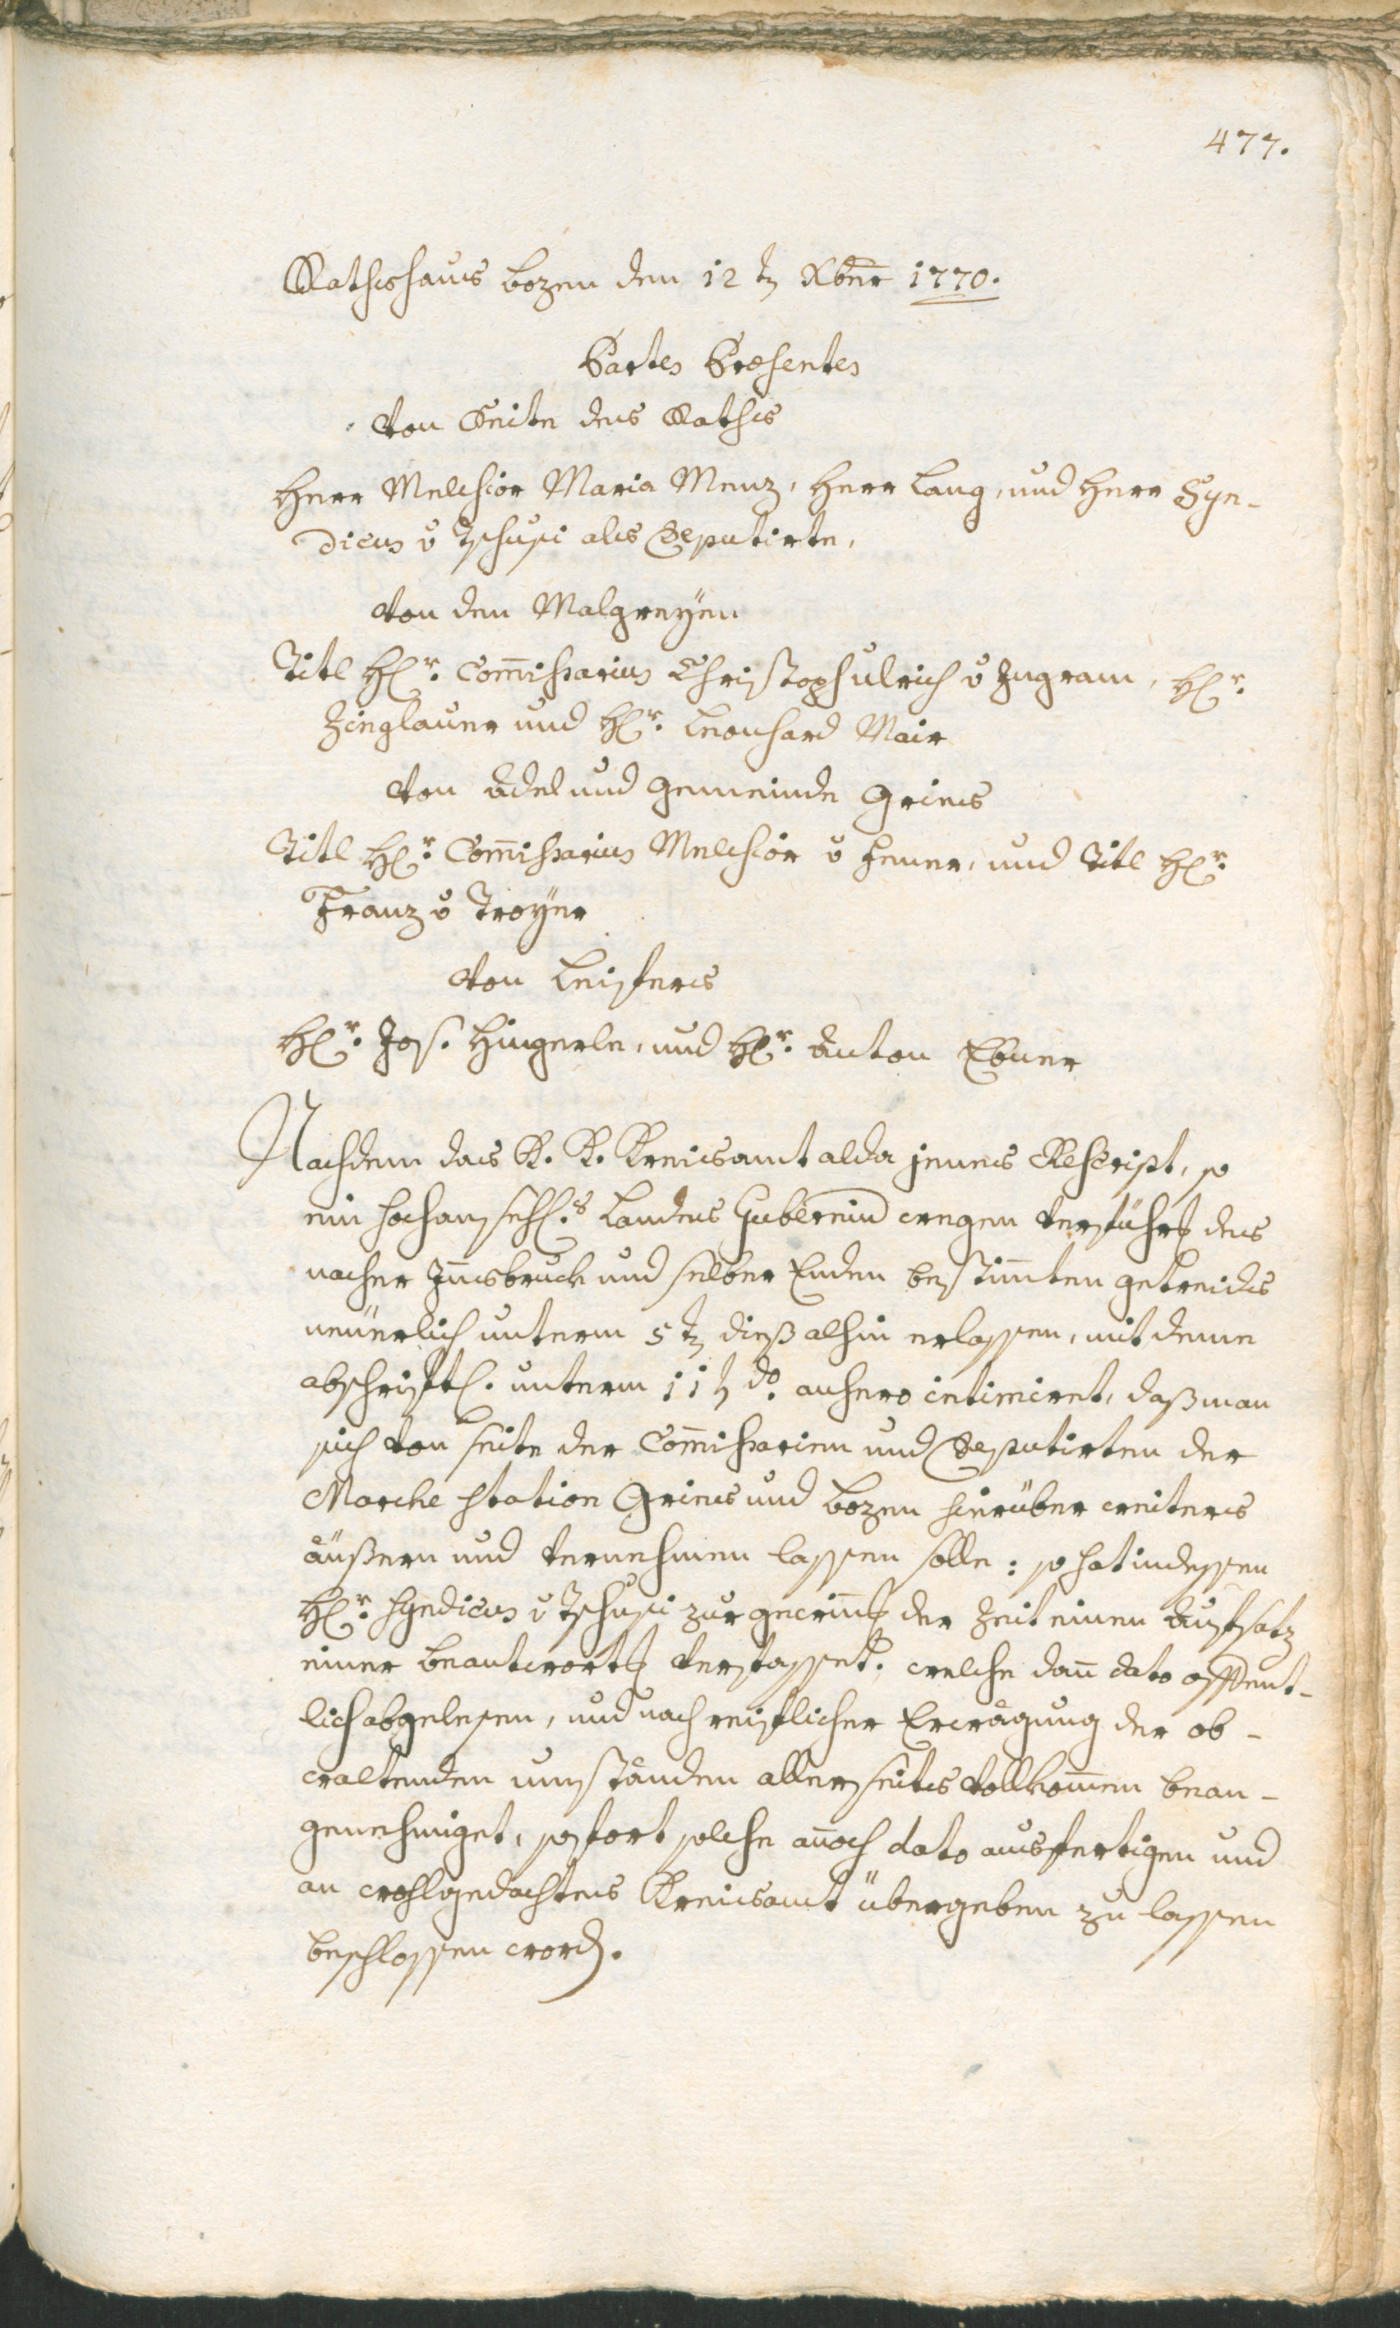 477.
Rathshaus Bozen den 12 tn Xbr̄ 1770.
Partes Præsentes
von Seite des Raths
Herr Melchior Maria Menz, Herr Lang, und Herr Syn-
dicus v Tschusi als Deputirte,
von den Malgreÿen
Titl H̄r. Com̄issarius Christoph Ulrich v Ingram, H̄r.
Zieglauer und H̄r. Leonhard Mair
von Adel und Gemeinde Gries
Titl H̄r. Com̄issarius Melchior v Hener, und Titl H̄r.
Franz v Troÿer
von Leifers
H̄r. Jos. Hingerle, und H̄r. Anton Ebner
Nachdem das K. K. Kreisamt alda jenes Rescript, so
ein hochansehl.s Landes Gubernin̄ wegen Verführg des
nacher Iñsbruck und selber Enden bestim̄ten getreids
neüerlich unterm 5 tn dieß alhin erlassen, mit deme
abschriftl. unterm 11 tn do. anhero intimiret, daß man
sich von seite der Com̄issarien und Deputirten der
Marche Station Gries und Bozen hierüber weiters
äußern und vernehmen lassen solle: so hat indessen
H̄r. Syndicus v Tschusi zur gewiñg der Zeit einen Aufsatz
einer Beantwortg verfasset. welche dañ dato offent-
lich abgelesen, und nach reiflicher Erwägung der ob-
waltenden umständen allerseits vollkom̄en bean-
genehmiget, sofort solche añoch dato ausfertigen und
an wohlgedachtes Kreisamt übergeben zu lassen
beschlossen word.